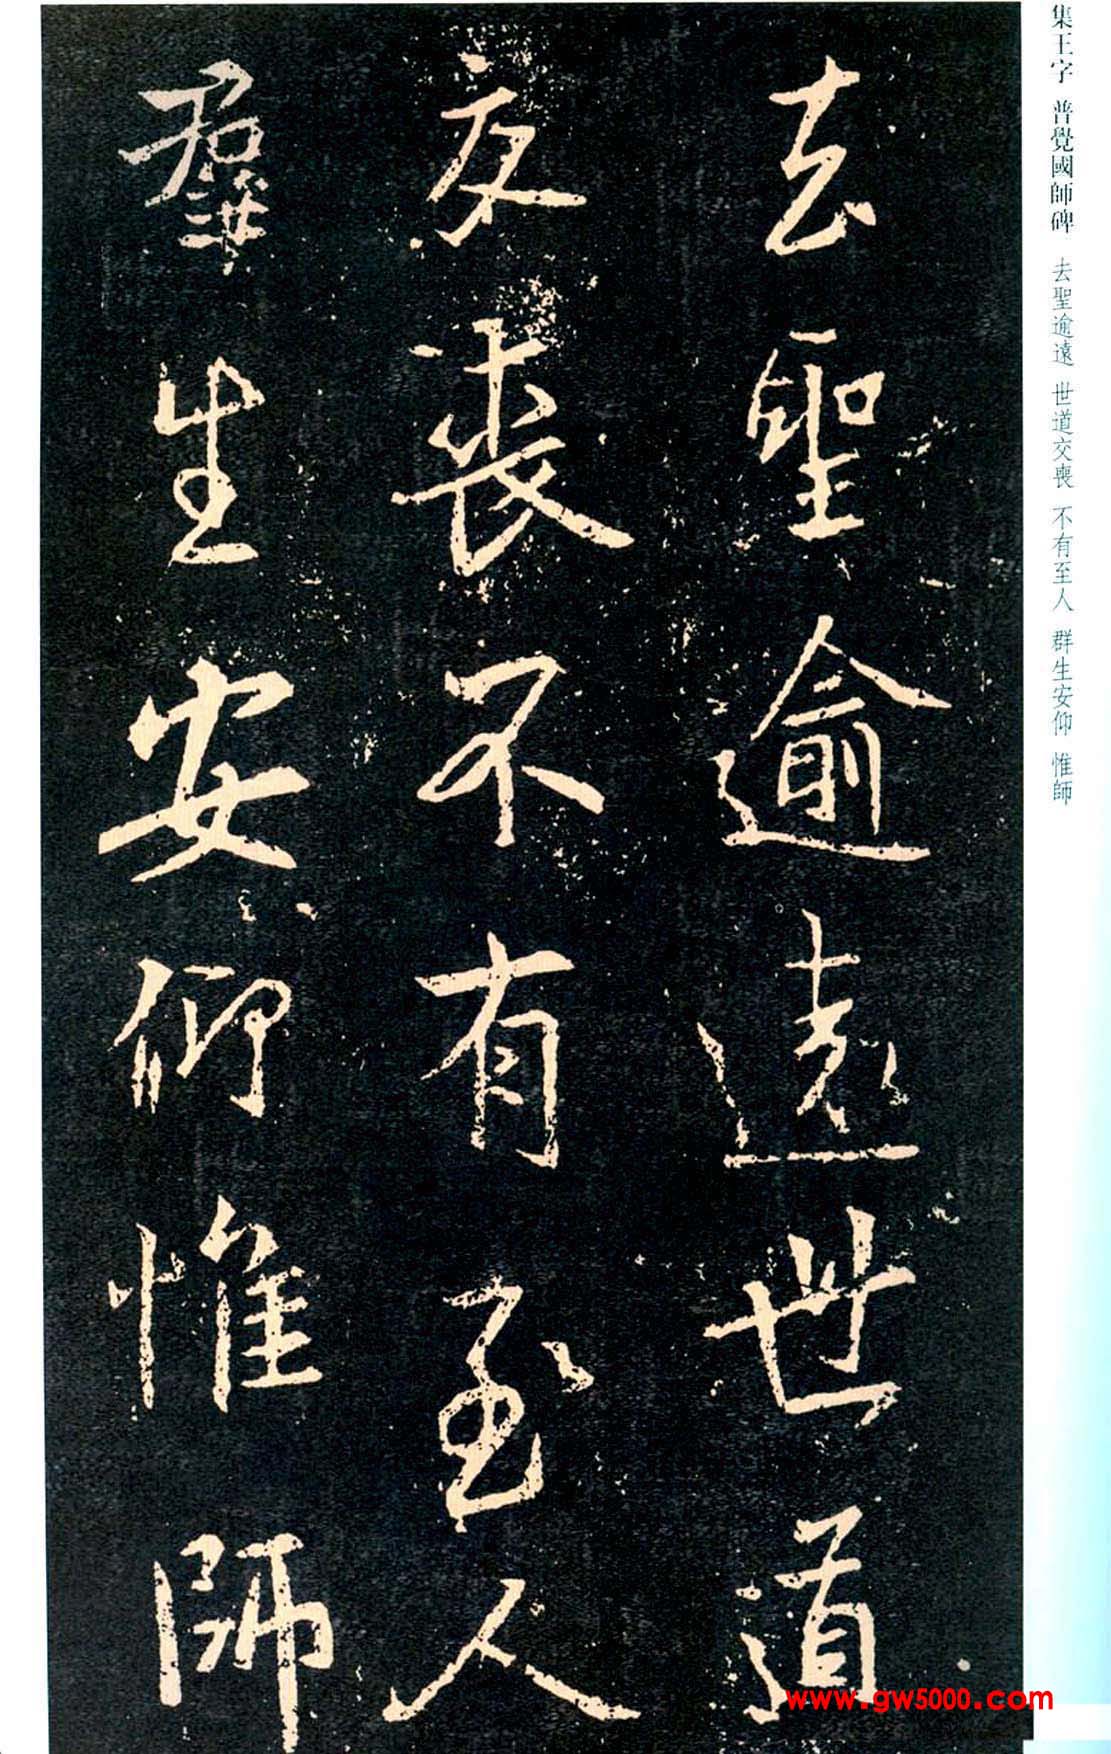 集王字 普覺國師碑 去聖逾遠 世道交喪 不有至人 群生安仰 惟師
去聖逾遠世道
交喪不有至人
羣生安仰惟師
www.gw5000.com